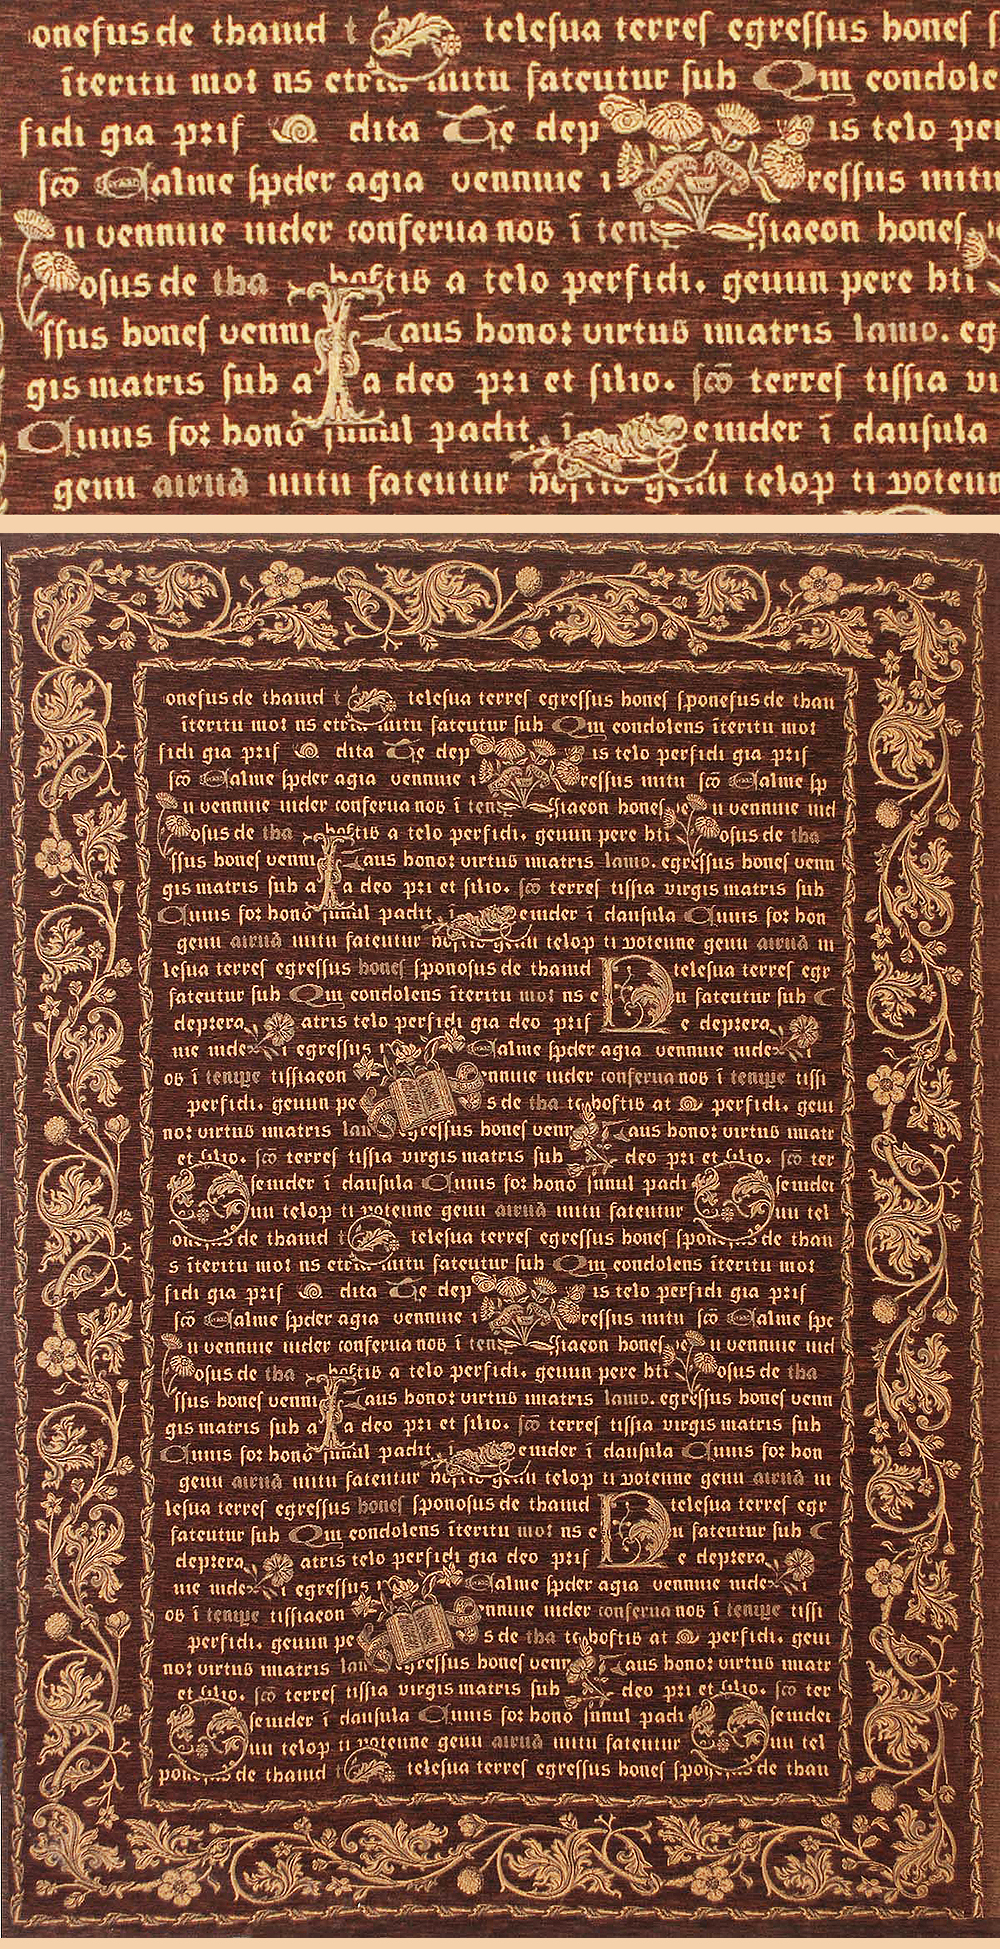 onefus de thamd t telesua terres egressus hones s
īteritu moꝛ ns etria mitu fateutur sub Qm condole
fidi gia pꝛiſ dita Te dep is telo per
sc̄o alme spder agia vennue i ressus mitu
u vennue inder conferua nos ī temp ssiaeon hones
osus de tha hostis a telo perfidi. geuun pere hti
ssus hones venni aus honoꝛ virtus matris lamo. eg
gis matris sub a I a deo pꝛi et filio. sc̄o terres tissia vi
Quuis foꝛ hono simul padit i emder ī dausula
geuu airuā mitu fateutur hostis geuu telop ti poteun
onefus de thamd t telesua terres egressus hones sponefus de than
īteritu moꝛ ns etria mitu fateutur sub Qm condolens īteritu moꝛ
fidi gia pꝛiſ dita Te dep is telo perfidi gia pꝛiſ
sc̄o alme spder agia vennue i ressus mitu sc̄o alme sp
u vennue inder conferua nos ī temp ssiaeon hones u vennue ind
osus de tha hostis a telo perfidi. geuun pere hti osus de tha
ssus hones venni aus honoꝛ virtus matris lamo. egressus hones venn
gis matris sub a I a deo pꝛi et filio. sc̄o terres tissia virgis matris sub
Quuis foꝛ hono simul padit i emder ī dausula Quuis foꝛ hon
geuu airuā mitu fateutur hostis geuu telop ti poteune geuu airuā m
lesua terres egressus hones sponosus de thamd D telesua terres egr
fateutur sub Qm condolens īteritu moꝛ ns e u fateutur sub
depꝛera atris telo perfidi gia deo pꝛiſ e depꝛera
ue inde i egressus alme spder agia vennue inde i
os ī tempe tissiaeon ennue inder conferua nos ī tempe tissi
perfidi. geuun pe s de tha te hostis at perfidi. geuu
noꝛ virtus matris lam egressus hones venr aus honoꝛ virtus matr
et filio. sc̄o terres tissia virgis matris sub deo pꝛi et filio. sc̄o ter
semder ī dausula Quuis foꝛ hono simul padi semder
uu telop ti poteune geuu airuā mitu fateutur uu tel
onefus de thamd t telesua terres egressus hones sponefus de than
s īteritu moꝛ ns etria mitu fateutur sub Qm condolens īteritu moꝛ
fidi gia pꝛiſ dita Te dep is telo perfidi gia pꝛiſ
sc̄o alme spder agia vennue i ressus mitu sc̄o alme spe
u vennue inder conferua nos ī temp ssiaeon hones u vennue ind
osus de tha hostis a telo perfidi. geuun pere hti osus de tha
ssus hones venni aus honoꝛ virtus matris lamo. egressus hones venn
gis matris sub a I a deo pꝛi et filio. sc̄o terres tissia virgis matris sub
Quuis foꝛ hono simul padit i emder ī dausula Quuis foꝛ hon
geuu airuā mitu fateutur hostis geuu telop ti poteune geuu airuā m
lesua terres egressus hones sponosus de thamd D telesua terres egr
fateutur sub Qm condolens īteritu moꝛ ns e u fateutur sub
depꝛera atris telo perfidi gia deo pꝛiſ e depꝛera
ue inde i egressus alme spder agia vennue inde i
os ī tempe tissiaeon ennue inder conferua nos ī tempe tissi
perfidi. geuun pe s de tha te hostis at perfidi. geuu
noꝛ virtus matris lam egressus hones venr aus honoꝛ virtus matr
et filio. sc̄o terres tissia virgis matris sub deo pꝛi et filio. sc̄o ter
semder ī dausula Quuis foꝛ hono simul padi semder
uu telop ti poteune geuu airuā mitu fateutur uu tel
ponefus de thamd t telesua terres egressus hones sponefus de than